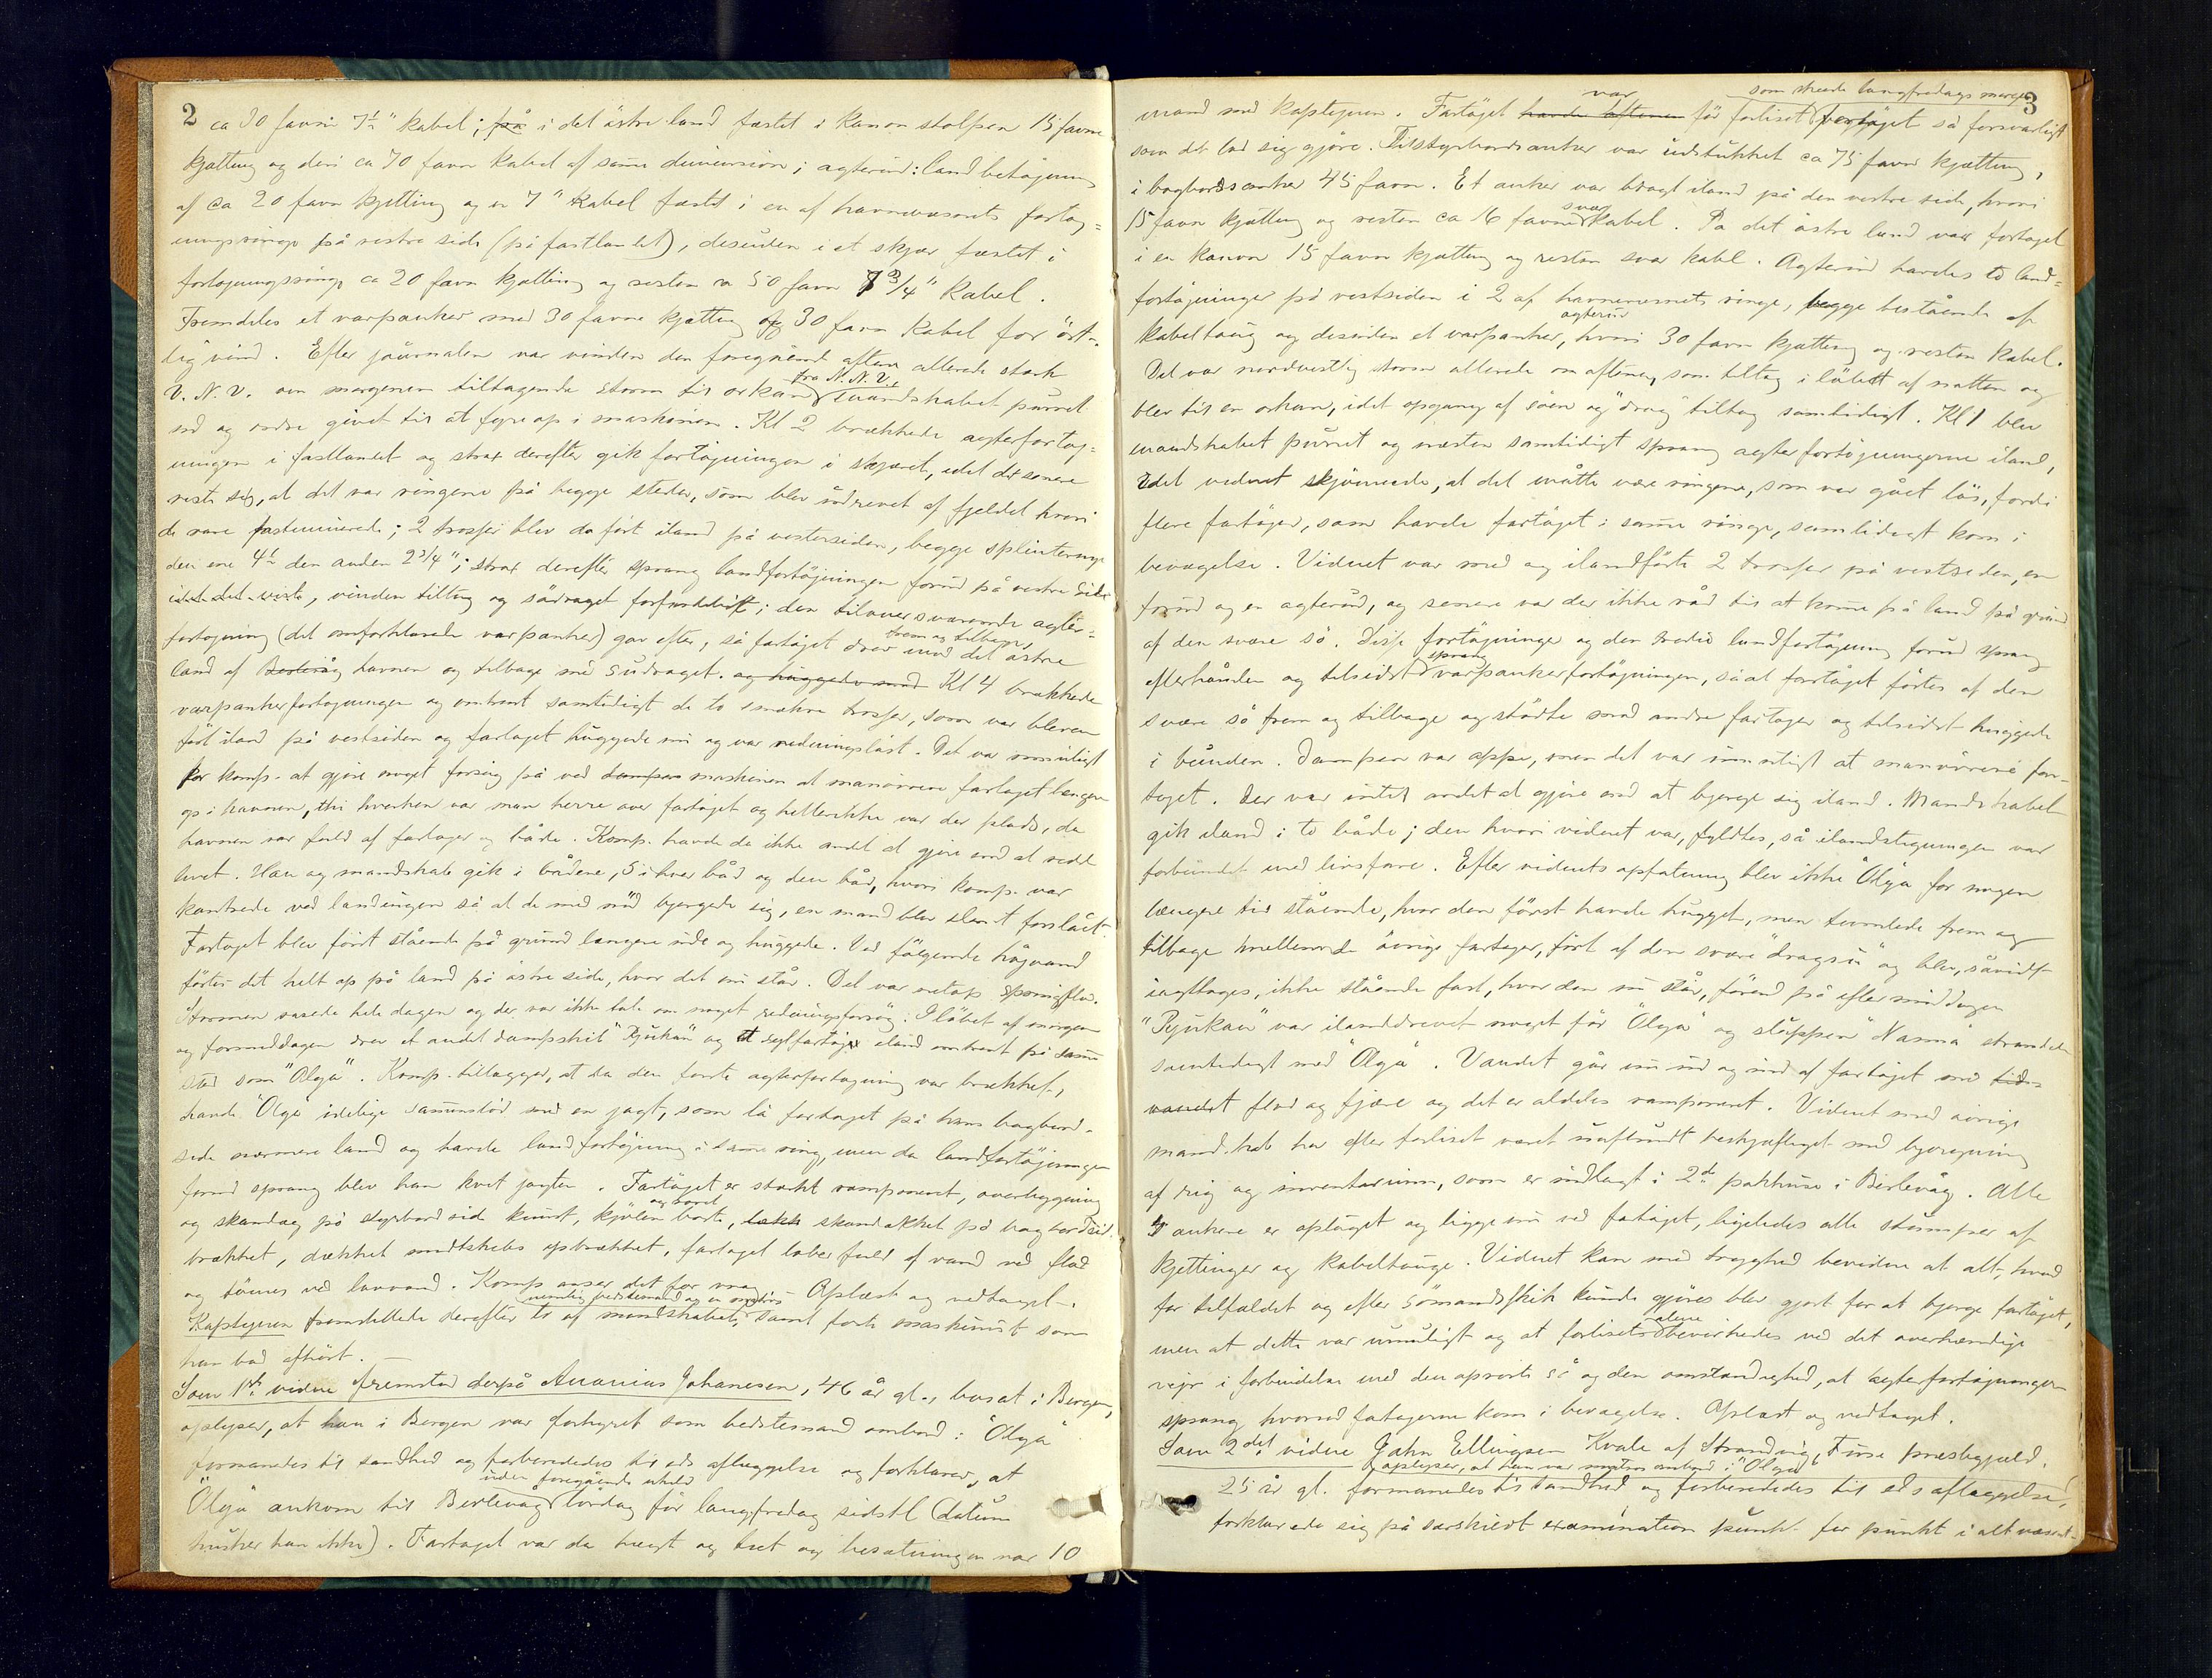 2
ca 30 favn 7½" kabel; på i det østre land fæstet i kanon stolpen 15 favne
kjætting og deri ca 70 favn kabel af samme dimension; agterud: landbetøjning
af ca 20 favn kjetting og en 7" kabel fæstet i en af havnevæsenets fortøj=
ningsringe på vestre side (på fastlandet), desuden i et skjær fæstet i
fortøjningsring ca 20 favn kjætting og resten ca 50 favn 7 3/4" kabel.
Fremdeles et varpanker med 30 favne kjætting og 30 favn kabel for øst-
lig vind. Efter journalen var vinden den foregående aften allerede stærk
V.N.V. om morgenen tiltagende storm til orkan fra N.N.V., mandskabet purret
ud og ordre givet til at fyre op i maskinen. Kl 2 brækkede agterfortøj-
ningen i fastlandet og strax derefter gik fortøjningen i skjæret, idet det senere
viste sig, at det var ringene på begge steder, som blev udrevet af fjeldet hvori
de vare fastminerede; 2 trosser blev da ført iland på vestersiden, begge splinternye
den ene 4½ den anden 2 3/4"; strax derefter sprang landfortøjningen forud på vestre side
idet det viste, vinden tiltog og sødraget forfærdeligt; den tiloversværende agter=
fortøjning (det omforklarede varpanker) gav efter, så fartøjet drev frem og tilbage, mod det østre
land af Berlevåg havnen og tilbage med sudraget. og huggede mod Kl 4 brækkede
varpankerfortøjningen og omtrent samtidigt de to smækre trosser, som var bleven
ført iland på vestsiden og fartøjet huggede nu og var redningsløst. Det var umuligt
for komp. at gjøre noget forsøg på ved dampen maskinen at manøvrere fartøjet længere
op i havnen, thi hverken var man herre over fartøjet og heller ikke var der plads, da
havnen var fuld af fartøjer og både. Komp. havde da ikke andet at gjøre end at redde
livet. Han og mandskab gik i bådene, 5 i hver båd og den båd, hvori komp. var
kantrede ved landingen så at de med nød bjergede sig, en mand blev slemt forslået.
Fartøjet blev først stående på grund længere ude og huggede. Ved følgende højvand
førtes det helt op på land på østre side, hvor det nu står. Det var netop springflod.
Stormen rasede hele dagen og der var ikke tale om noget redningsforsøg. I løbet af morgen
og formiddagen drev et andet dampskib "Rjukan" og et sejlfartøj iland omtrent på samme
sted som "Olga". Komp. tillægger, at da den første agterfortøjning var brækket,
havde "Olga" idelige sammenstød med en jagt, som lå fortøjet på hans bagbord-
side nærmere land og havde landfortøjning i samme ring, men da landfortøjningen
forud sprang blev han kvit jagten. Fartøjet er stærkt ramponeret, overbygning
og skandæg på styrbord side knust, kjølen og roret borte, skandækket på bagbord side
brækket, dækket midtskibs opbrækket, fartøjet løber fuld af vand ved flod
og tømes ved lavvand. Komp anser det for vrag. Oplæst og vedtaget.
Kaptejnen fremstillede derefter to af mandskabet, nemlig bedstemand og en matros samt første maskinist som
han bad afhørt.
Som 1ste vidne fremstod derpå Ananias Johanesen, 46 år gl., bosat i Bergen,
oplyser, at han i Bergen var forhyret som bedstemand ombord i "Olga"
formanedes til sandhed og forberededes til eds aflæggelse og forklarer, at
"Olga" ankom til Berlevåg uden foregående uheld lørdag før langfredag sidstl (datum
husker han ikke). Fartøjet var da tæt og besætningen var 10
3
mand med kaptejnen. Fartøjet havde aftenen var før forliset som skede langfredags morgen fortøjet så forsvarligt
som det lod sig gjøre. Til styrbordsanker var udstukket ca 75 favn kjætting,
i bagbordsanker 45 favn. Et anker var bragt iland på den vestre side, hvori
15 favn kjætting og resten ca 16 favne svær kabel. På det østre land var fortøjet
i en kanon 15 favn kjætting og resten svær kabl. Agterud havdes to land=
fortøjninger på vestsiden i 2 af havnevæsnets ringe, begge bestående af
kabeltoug og desuden et varpanker agterud, hvori 30 favn kjætting og resten kabel.
Det var nordvestlig storm allerede om aftenen, som tiltog i løbet af natten og
blev til en orkan, idet opgang af søen og "drag" tiltog samtidigt. Kl 1 blev
mandskabet purret og næsten samtidigt sprang agterfortøjningerne iland,
idet vidnet skjønnede, at det måtte være ringene, som var gået løs, fordi
flere fartøjer, som havde fortøjet i samme ringe, samtidigt kom i
bevægelse. Vidnet var med og ilandførte 2 trosser på vestsiden, en
forud og en agterud, og senere var der ikke råd til at komme på land på grund
af den svære sø. Disse fortøjninger og den tredie landfortøjning forud sprang
efterhånden og tilsidst sprang varpankerfortøjningen, så at fartøjet førtes af den
svære sø frem og tilbage og stødte mod andre fartøjer og tilsidst huggede
i bunden. Dampen var oppe, men det var umuligt at manøvrere far-
tøjet. Der var intet andet at gjøre end at bjerge sig iland. Mandskabet
gik iland i to både; den hvori vidnet var, fyldtes, så ilandstigningen var
forbundet med livsfare. Efter vidnets opfatning blev ikke "Olga" for nogen
længere tid stående, hvor den først havde hugget, men tumlede frem og
tilbage mellem de øvrige fartøjer, ført af den svære "dragsu" og blev, såvidt
iagttages, ikke stående fast, hvor den nu står, førend på eftermiddagen
"Rjukan" var ilanddrevet noget før "Olga" og sluppen "Nanna" strandede
samtidigt med "Olga". Vandet går nu ud og ind af fartøjet med tid=
vandet flod og fjære og det er aldeles ramponeret. Vidnet med øvrige
mandskab har efter forliset været uafbrudt beskjæftiget med bjergning
af rig og inventarium, som er indlagt i 2de pakhuse i Berlevåg. Alle
ankere er optaget og ligge nu ved fartøjet, ligeledes alle stumper af
kjettinger og kabeltouge. Vidnet kan med tryghed bevidne at alt, hvad
for tilfældet og efter sømandsskik kunde gjøres blev gjort for at bjerge fartøjet,
men at dette var umuligt og at forliset alene bevirkedes ved det overhændige
vejr i forbindelse med den oprørte sø og den omstændighed, at agterfortøjningen
sprang hvorved fartøjerne kom i bevægelse. Oplæst og vedtaget.
Som 2det vidne John Ellingsen Kvale af Strandvig, Fuse præstegjæld.
25 år gl. oplyser, at han var matros ombord i "Olga" formanedes til sandhed og forberededes til eds aflæggelse,
forklarede sig på særskildt examination punkt for punkt i alt væsent-